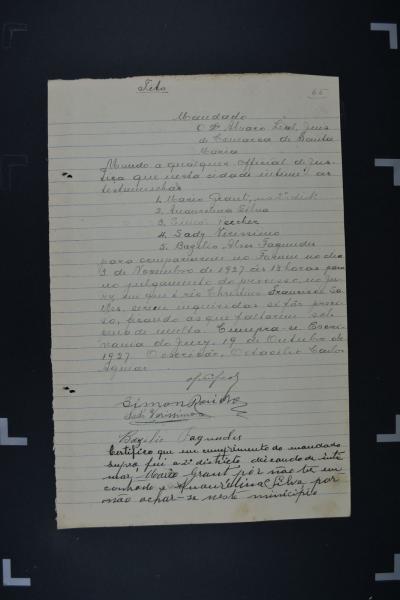 65
Mandado
O Dr Alvaro Leal, Juis
da Comarca de Santa
Maria
Mando a qualquer official de Jus-
tiça que nesta cidade intime as
testemunhas
1. Mario Grant, no 2º dist.
2. Amarolina Silva
3. Simão
4. Sady Verissimo
5. Bazilio Alves Fagundes
para comparecerem no Forum no dia
3 de Novembro de 1927 ás 13 horas para
no julgamento do processo, no ju-
ry, em que é réo Christino
serem inqueridas se fôr preci-
so, ficando as que faltarem
de multa Cumpra-se Escri-
vania do Jury, 19 de Outubro de
1927. O escrivão, Octacilio Carlos
Aguiar
Simon
Sady Verissimo
Bazilio Fagundes
Certifico que em cumprimento do mandado
supra fui a 2º districto deixando de inti
mar, Mario Grant por não ter en
contrado e Amarolina Silva por
não achar-se neste município